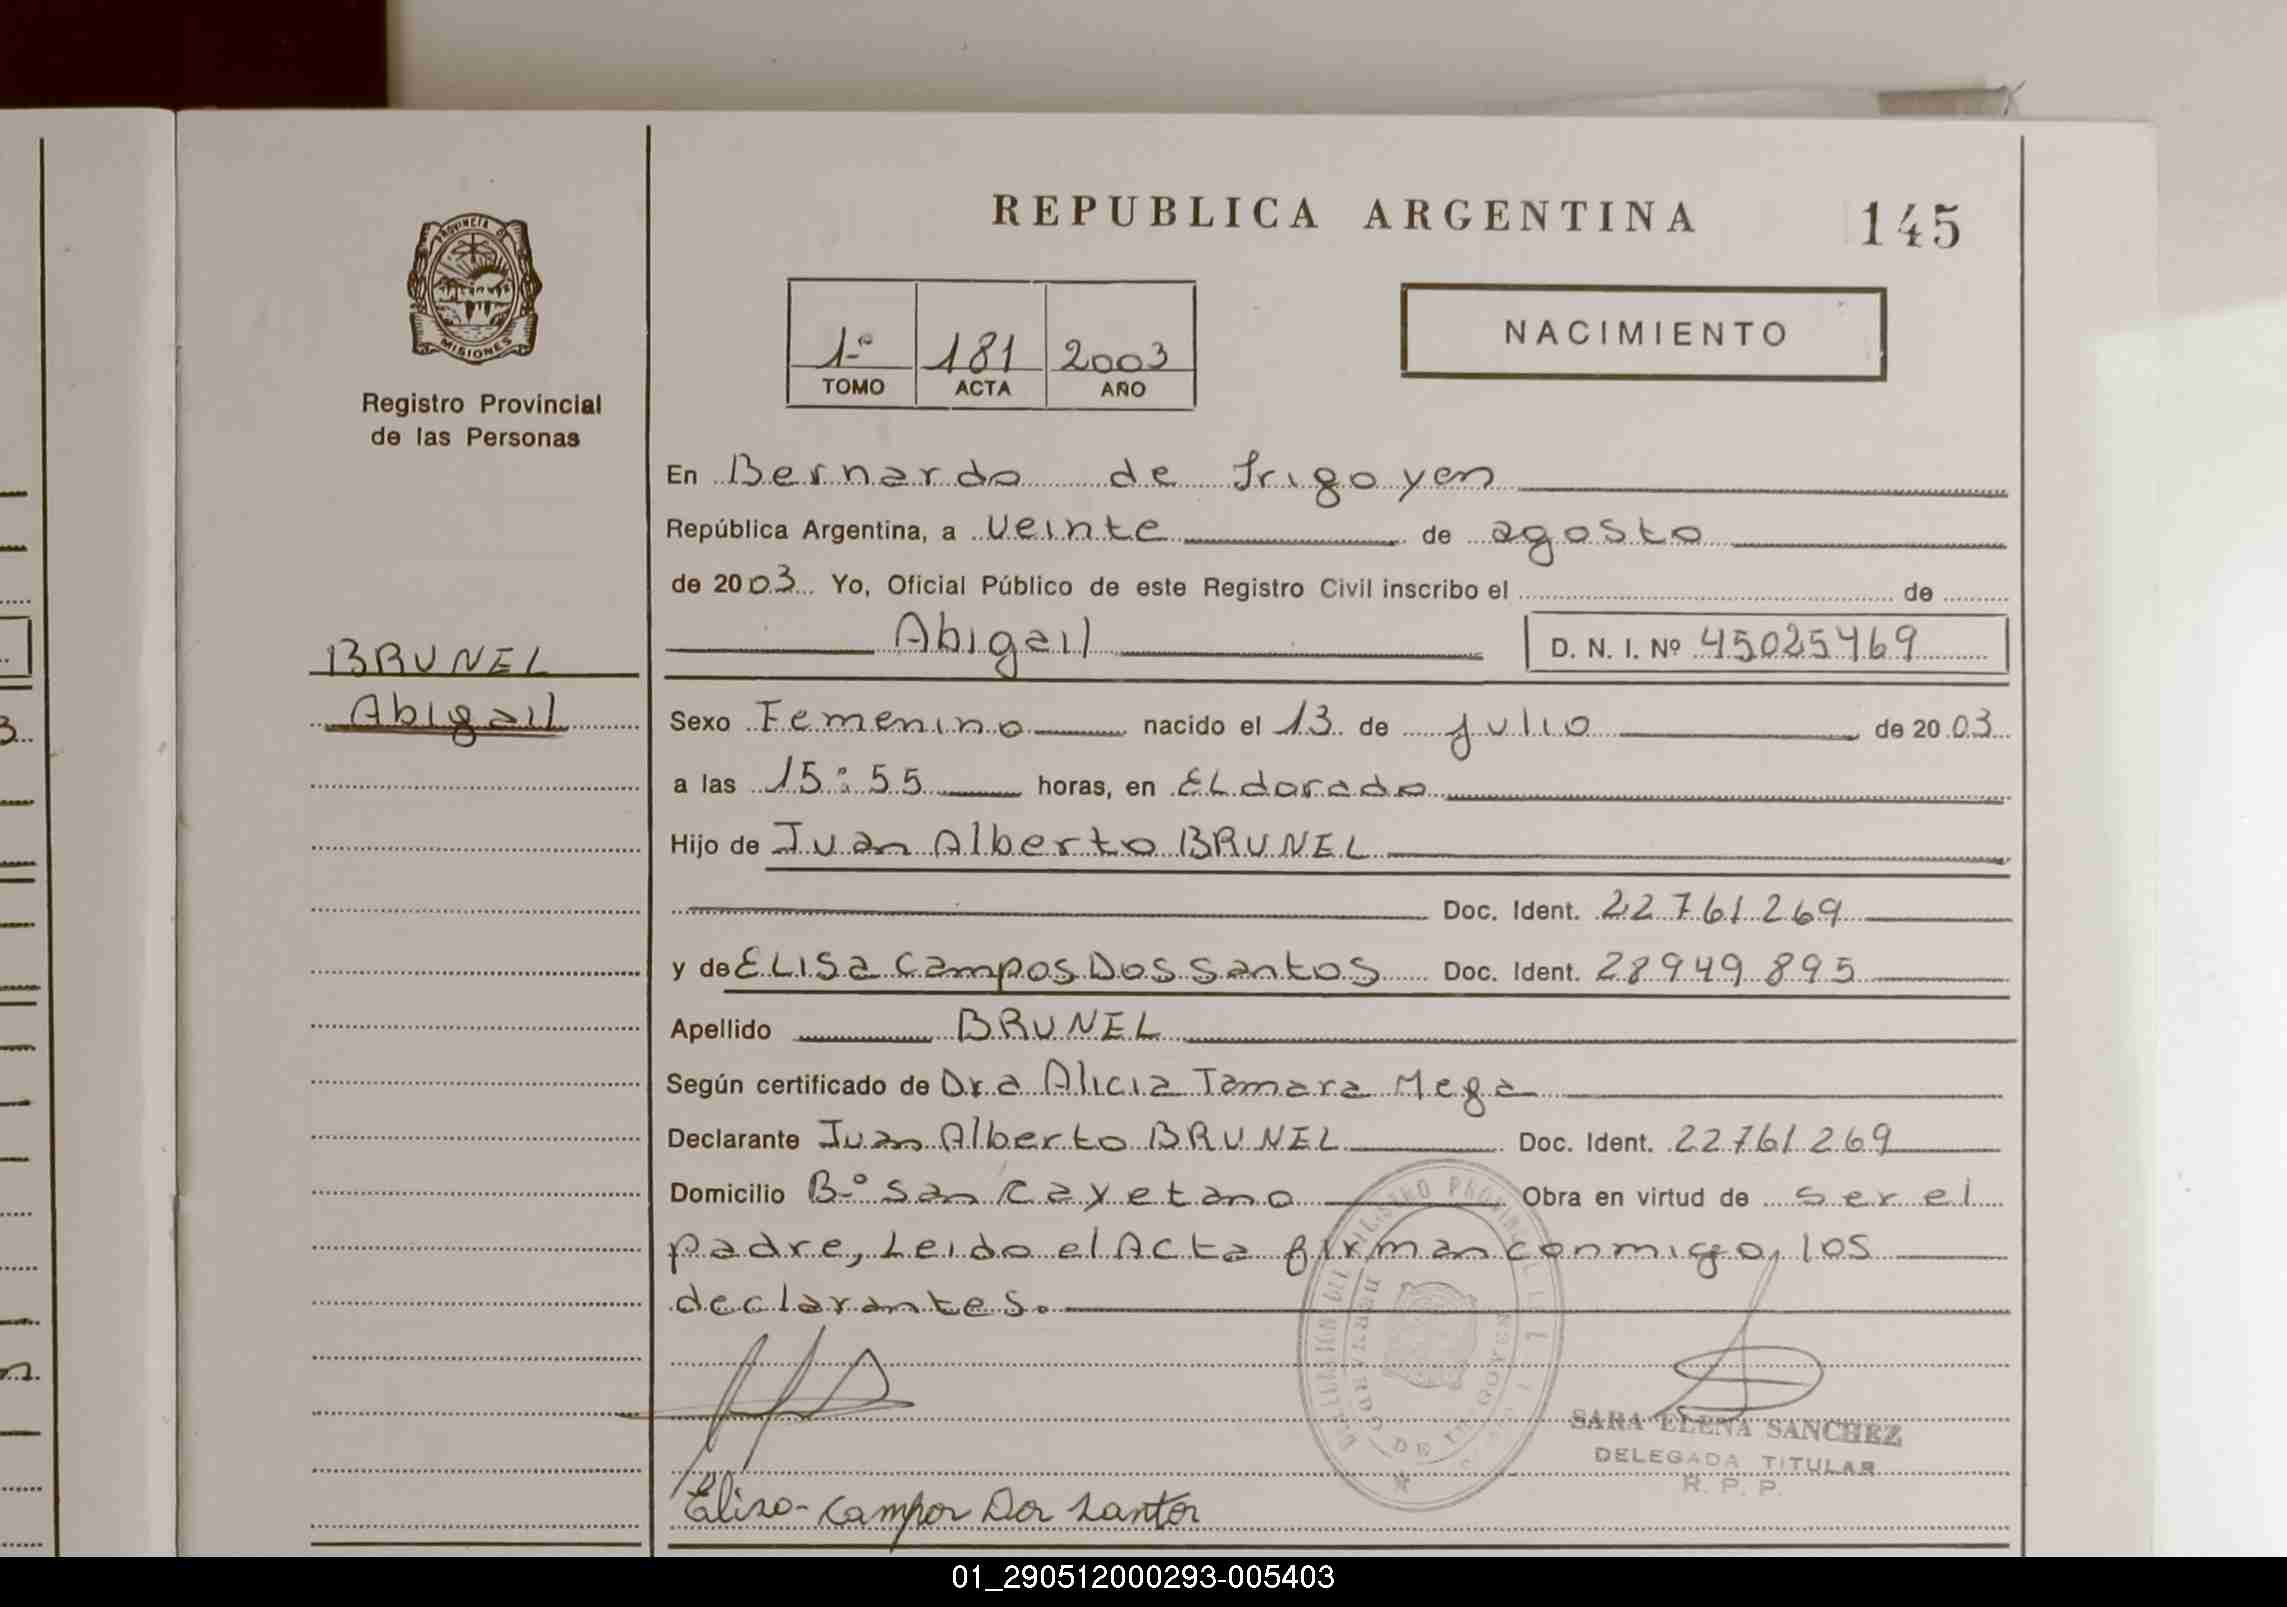 REPUBLICA ARGENTINA
145
PROVINCIA D
MISIONES
Registro Provincial
de las Personas
1º 181 2003
TOMO ACTA AÑO
NACIMIENTO
En Bernardo de Irigoyen
República Argentina, a Veinte de agosto
de 2003 Yo, Oficial Público de este Registro Civil inscribo el de
Abigail D. N. I. Nº 45025469
BRUNEL
Abigail
Sexo Femenino nacido el 13 de julio de 2003
a las 15:55 horas, en ELdorado
Hijo de Juan Alberto BRUNEL
Doc. Ident. 22761269
y de ELISa Campos Dos Santos Doc. Ident. 28949895
Apellido BRUNEL
Según certificado de Dra Alicia Tamara Mega
Declarante Juan Alberto BRUNEL Doc. Ident. 22761269
Domicilio Bº San Cayetano Obra en virtud de ser el
padre, Leido el Acta firman conmigo, los
declarantes.
SARA ELENA SANCHEZ
DELEGADA TITULAR
R. P. P.
Elisa Campos Dos Santos
01_290512000293-005403